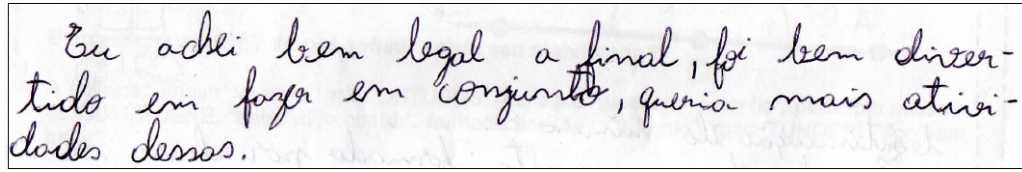 Eu achei bem legal a final, foi bem diver-
tido em fazer em conjunto, queria mais ativi-
dades dessas.